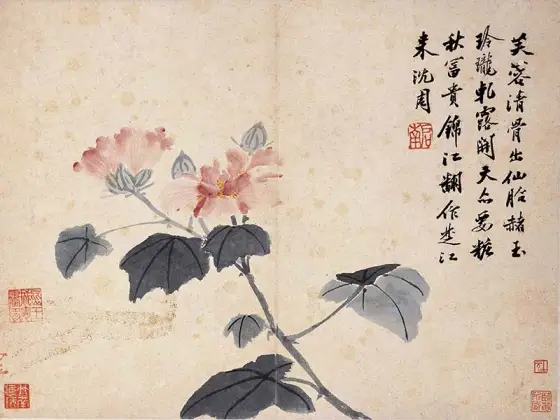 芙蓉清骨出仙胎赭玉
玲瓏軋露開天亦要粧
秋富貴錦江翻作楚江
來沈周
啟南